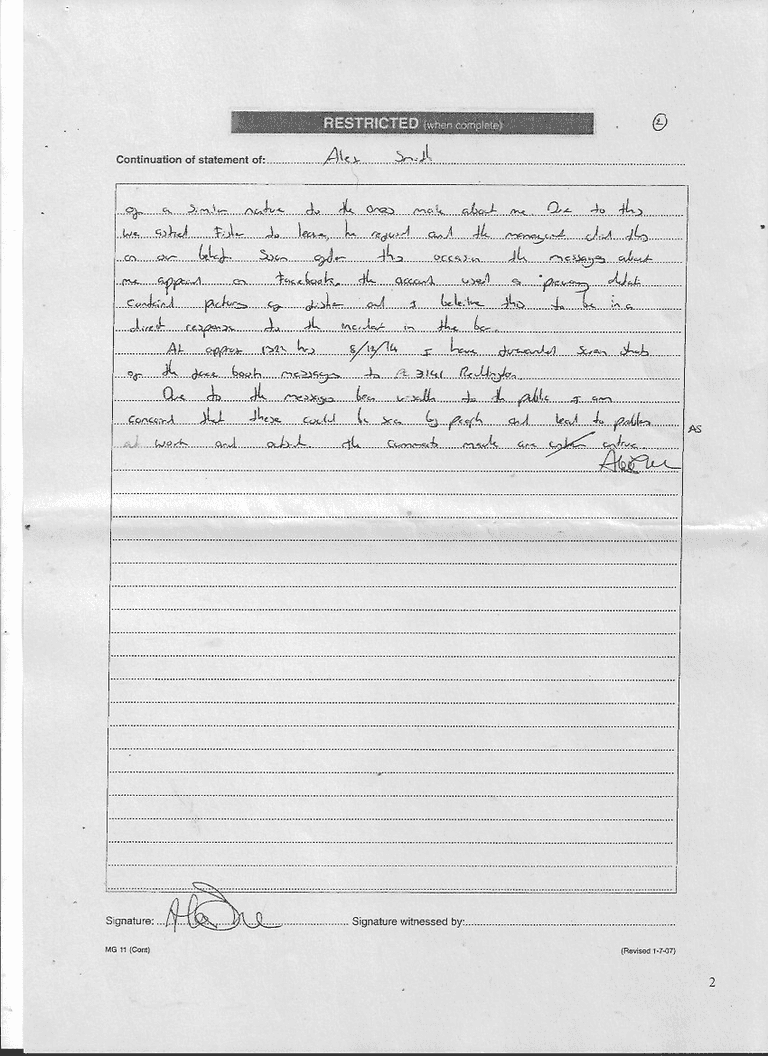 RESTRICTED (when complete)
2
Continuation of statement of: Alex Smith
of a similar nature to the ones made about me. Due to this
we asked Fisher to leave, he refused and the management did this
on our behalf. Soon after this occasion the messages about
me appeared on Facebook, the account used a
contained pictures of fisher and I believe this to be in a
direct response to the incident in the bar.
At approx hrs 8/12/14 I have forwarded screen shots
of the face book messages to 3141
Due to the messages been visible to the public I am
concerned that these could be seen by people and lead to problems
AS
at work and The comments made are untrue.
Signature: Signature witnessed by:
MG 11 (Cont) (Revised 1-7-07)
2